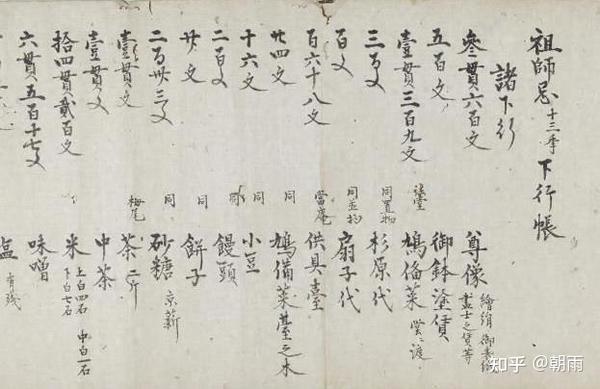 祖師忌十三年下行帳
諸下行
參貫六百文 尊像 繪絹 畫士之賃等
五百文 御鉢塗賃
壹貫三百九文 鳩備菜
三百文 同置物 杉原代
百文 扇子代
百六十八文 當庵 供具臺
廿四文 同 鳩備菜臺之木
十六文 同 小豆
二百文 饅頭
廿文 同 餅子
二百卅三文 同 砂糖 京薪
壹貫文 梅尾 茶 二斤
壹貫文 中茶
拾四貫貳百文 米 上白四石 中白一石 下白七石
六貫五百十七文 味噌
塩 有残
知乎 @朝雨